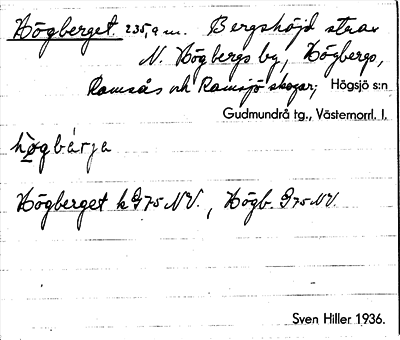 Högberget. 235,9 m. Bergshöjd strax
N. Högbergs by, Högbergs,
Ramsås och Ramsjö skogar; Högsjö s:n
Gudmundrå tg., Västernorrl. l.
hø̀gbárja
Högberget k G 75 NV., Högb. G 75 NV.
Sven Hiller 1936.